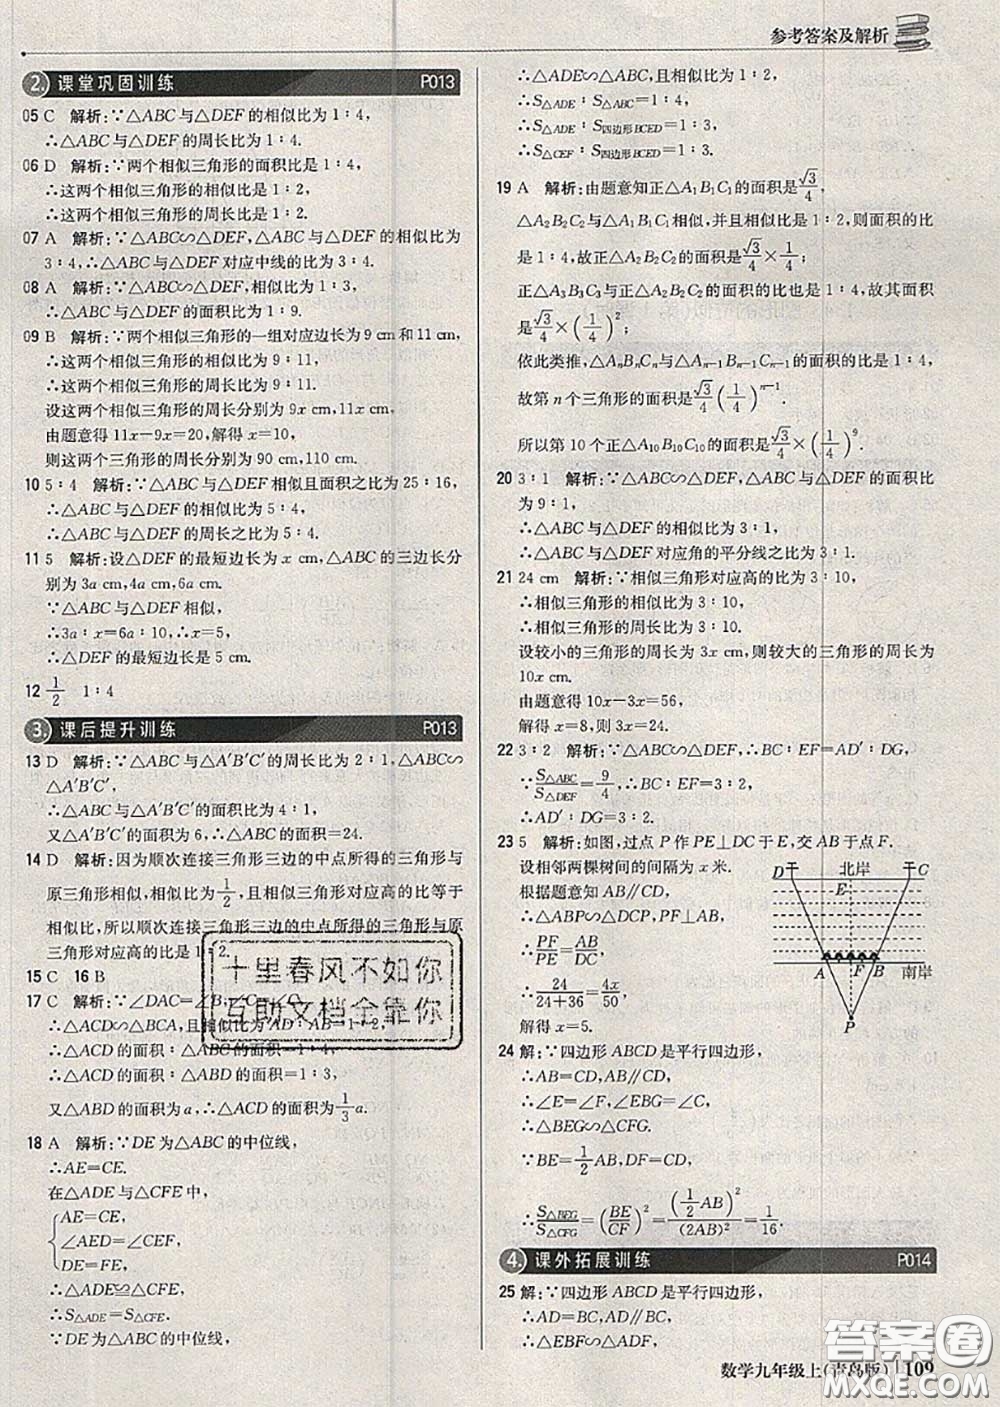 参考答案及解析
2. 课堂巩固训练 P013
05 C 解析:∵△ABC与△DEF的相似比为1∶4,
∴△ABC与△DEF的周长比为1∶4.
06 D 解析:∵两个相似三角形的面积比是1∶4,
∴这两个相似三角形的相似比是1∶2,
∴这两个相似三角形的周长比是1∶2.
07 A 解析:∵△ABC∽△DEF,△ABC与△DEF的相似比为
3∶4,∴△ABC与△DEF对应中线的比为3∶4.
08 A 解析:∵△ABC∽△DEF,相似比为1∶3,
∴△ABC与△DEF的面积比为1∶9.
09 B 解析:∵两个相似三角形的一组对应边长为9 cm和11 cm,
∴这两个相似三角形的相似比为9∶11,
∴这两个相似三角形的周长比为9∶11,
设这两个相似三角形的周长分别为9x cm,11x cm,
由题意得11x-9x=20,解得x=10,
则这两个三角形的周长分别为90 cm,110 cm.
10 5∶4 解析:∵△ABC与△DEF相似且面积之比为25∶16,
∴△ABC与△DEF的相似比为5∶4,
∴△ABC与△DEF的周长之比为5∶4.
11 5 解析:设△DEF的最短边长为x cm,△ABC的三边长分
别为3a cm,4a cm,6a cm.
∵△ABC与△DEF相似,
∴3a∶x=6a∶10,∴x=5,
∴△DEF的最短边长是5 cm.
12 1/2 1∶4
3. 课后提升训练 P013
13 D 解析:∵△ABC与△A′B′C′的周长比为2∶1,△ABC∽
△A′B′C′,
∴△ABC与△A′B′C′的面积比为4∶1,
又△A′B′C′的面积为6,∴△ABC的面积=24.
14 D 解析:因为顺次连接三角形三边的中点所得的三角形与
原三角形相似,相似比为1/2,且相似三角形对应高的比等于
相似比,所以顺次连接三角形三边的中点所得的三角形与原
三角形对应高的比是1∶2.
15 C 16 B
17 C 解析:∵∠DAC=∠B,∠C=∠C,
∴△ACD∽△BCA,且相似比为AD∶AB=1∶2,
∴△ACD的面积∶△ABC的面积=1∶4,
∴△ACD的面积∶△ABD的面积=1∶3,
又△ABD的面积为a,∴△ACD的面积=1/3 a.
18 A 解析:∵DE为△ABC的中位线,
∴AE=CE.
在△ADE与△CFE中,
AE=CE,
∠AED=∠CEF,
DE=FE,
∴△ADE≌△CFE,
∴S△ADE=S△CFE.
∵DE为△ABC的中位线,
∴△ADE∽△ABC,且相似比为1∶2,
∴S△ADE∶S△ABC=1∶4,
∴S△ADE∶S四边形BCED=1∶3,
∴S△CEF∶S四边形BCED=1∶3.
19 A 解析:由题意知正△A₁B₁C₁的面积是√3/4,
△A₂B₂C₂与△A₁B₁C₁相似,并且相似比是1∶2,则面积的比
是1∶4,故正△A₂B₂C₂的面积是√3/4×1/4;
正△A₃B₃C₃与正△A₂B₂C₂的面积的比也是1∶4,故其面积
是√3/4×(1/4)²;
依此类推,△AₙBₙCₙ与△Aₙ₋₁Bₙ₋₁Cₙ₋₁的面积的比是1∶4,
故第n个三角形的面积是√3/4(1/4)ⁿ⁻¹.
所以第10个正△A₁₀B₁₀C₁₀的面积是√3/4×(1/4)⁹.
20 3∶1 解析:∵△ABC∽△DEF,△ABC与△DEF的面积比
为9∶1,
∴△ABC与△DEF的相似比为3∶1,
∴△ABC与△DEF对应角的平分线之比为3∶1.
21 24 cm 解析:∵相似三角形对应高的比为3∶10,
∴相似三角形的相似比为3∶10,
∴相似三角形的周长比为3∶10.
设较小的三角形的周长为3x cm,则较大的三角形的周长为
10x cm.
由题意得10x-3x=56,
解得x=8,则3x=24.
22 3∶2 解析:∵△ABC∽△DEF,∴BC∶EF=AD′∶DG,
∵S△ABC/S△DEF=9/4,∴BC∶EF=3∶2,
∴AD′∶DG=3∶2.
23 5 解析:如图,过点P作PE⊥DC于E,交AB于点F.
设相邻两棵树间的间隔为x米.
根据题意知AB//CD,
∴△ABP∽△DCP,PF⊥AB,
∴PF/PE=AB/DC,
∴24/(24+36)=4x/50,
解得x=5.
D 北岸 C
E
A F B 南岸
P
24 解:∵四边形ABCD是平行四边形,
∴AB=CD,AB//CD,
∴∠E=∠F,∠EBG=∠C,
∴△BEG∽△CFG.
∵BE=1/2 AB,
∴S△BEG/S△CFG=(BE/CF)²=(1/2 AB)²/(2AB)²=1/16.
4. 课外拓展训练 P014
25 解:∵四边形ABCD是平行四边形,
∴AD=BC,AD//BC,
∴△EBF∽△ADF,
十里春风不如你
互助文档全靠你
答案圈
MXQE.COM
数学九年级上(青岛版) 109